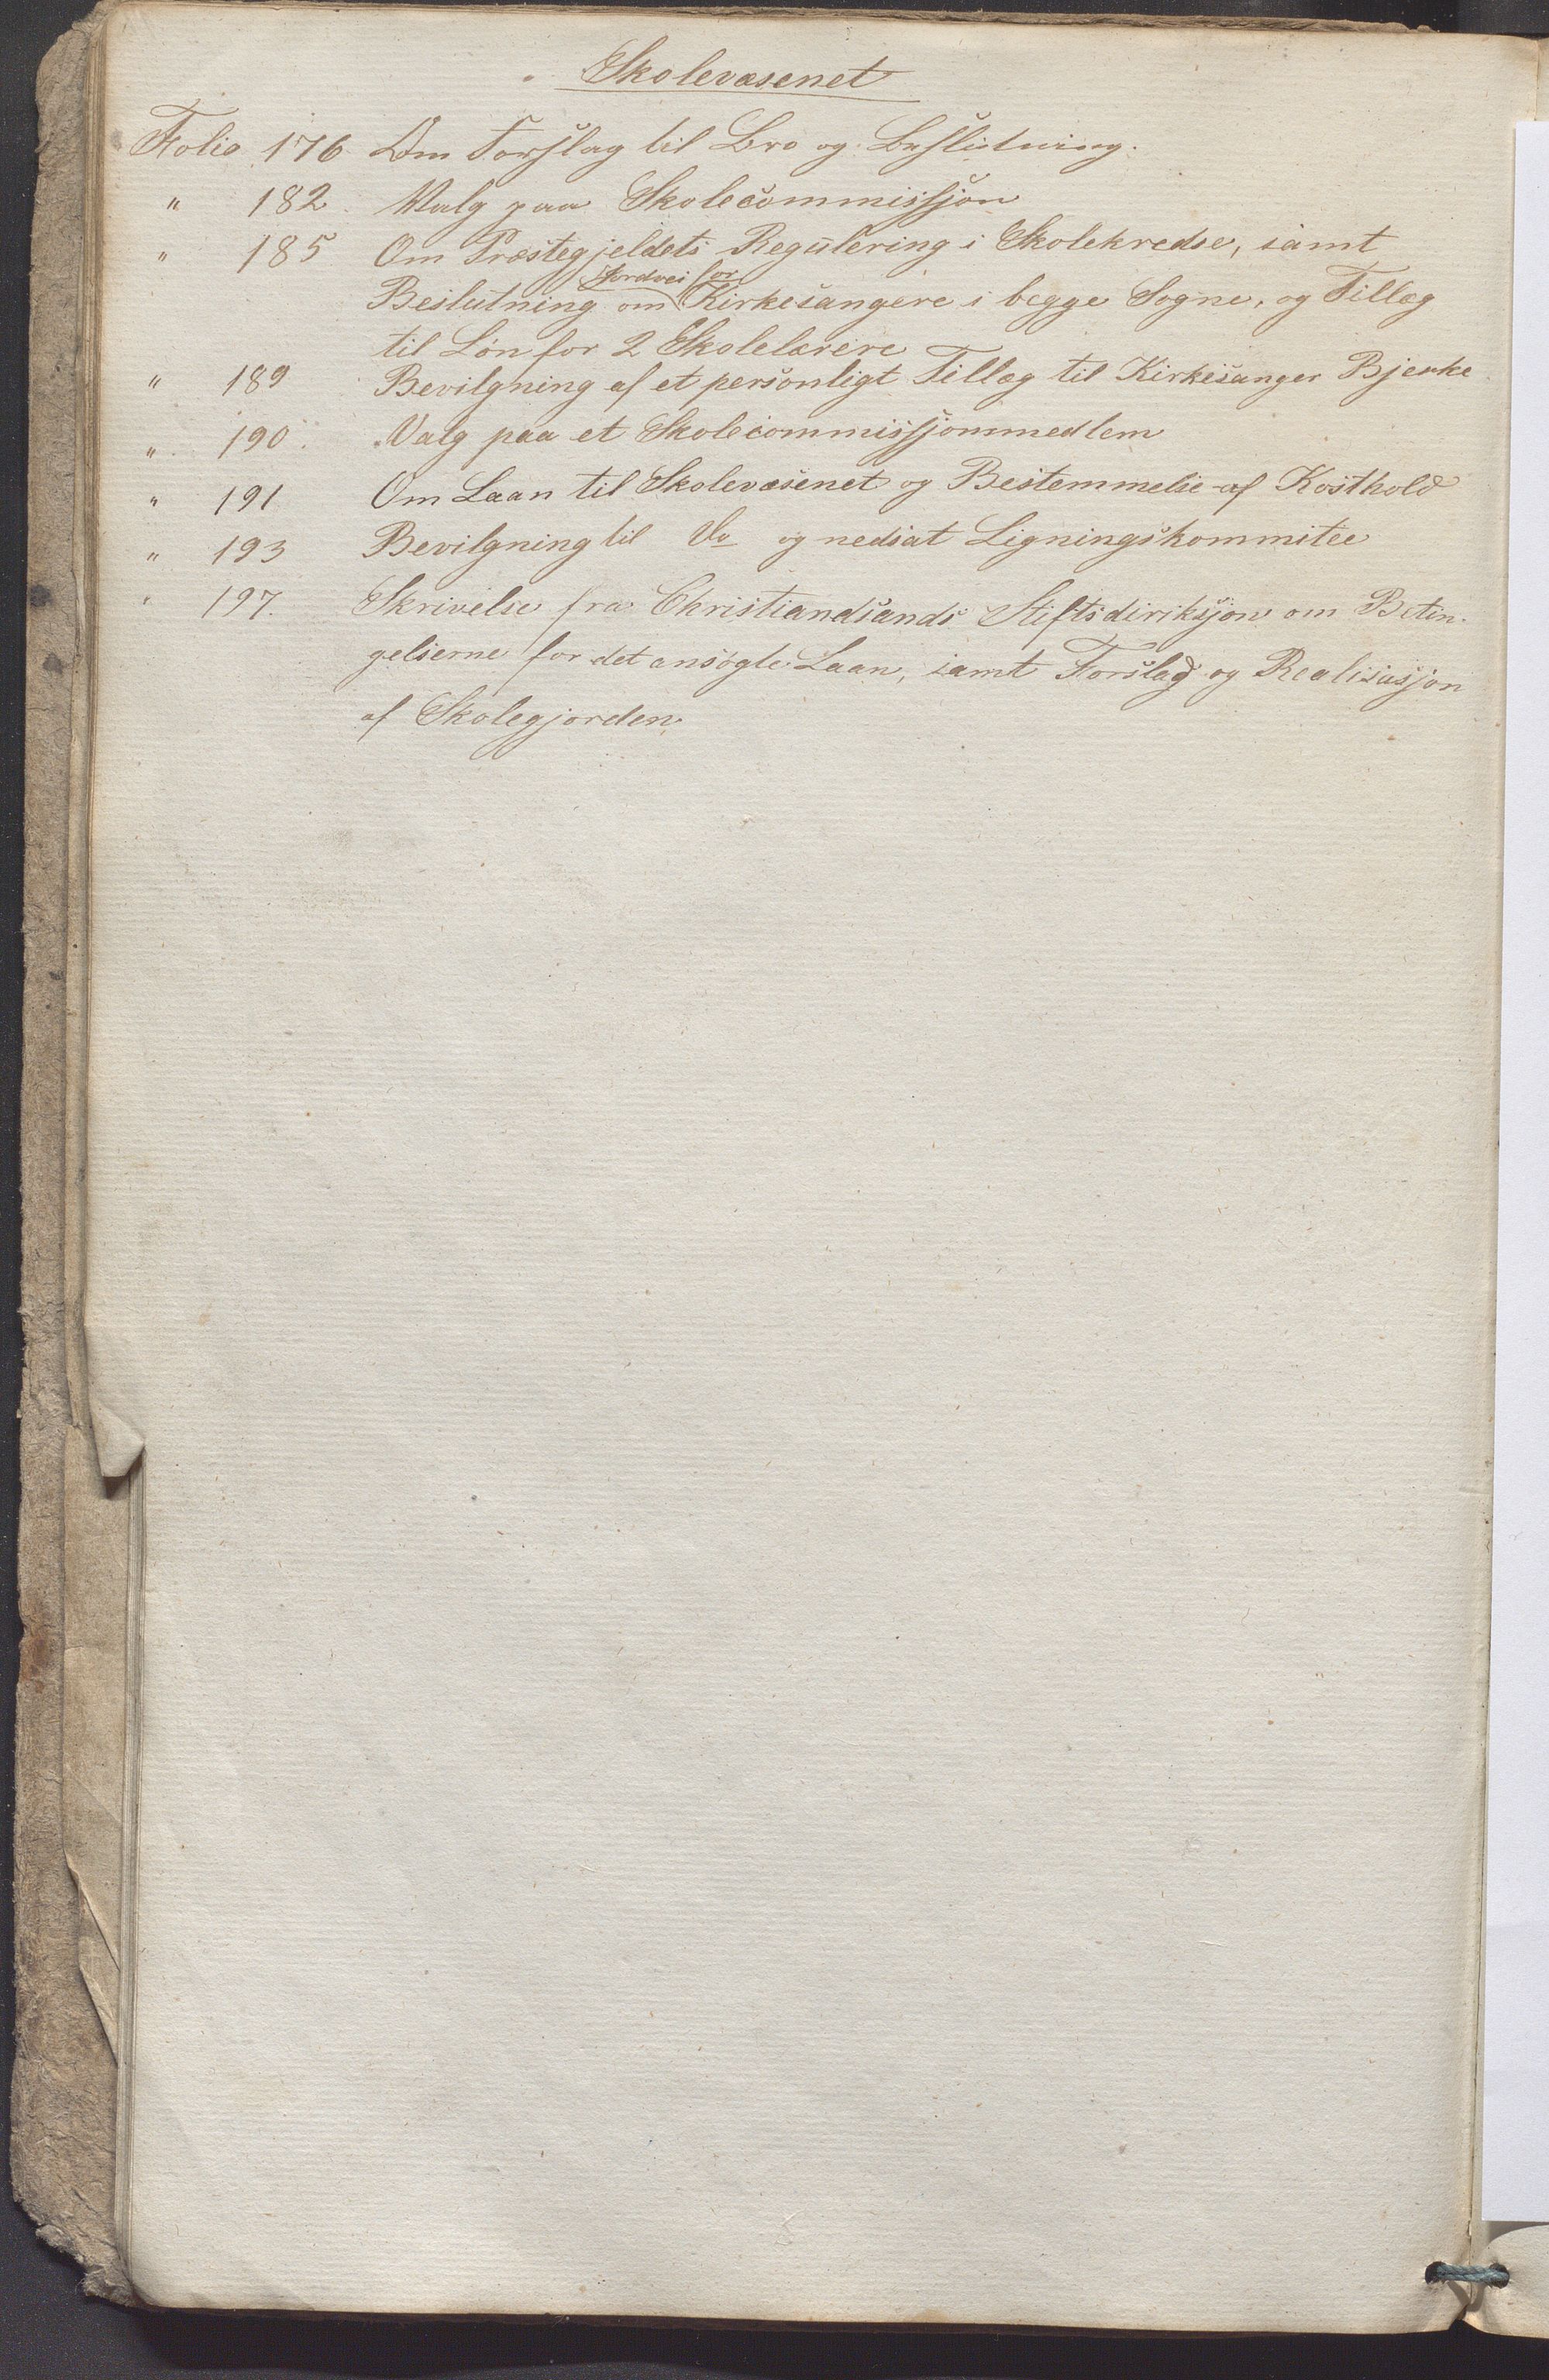 Skolevæsenet
Folio 176 Om Forslag til Bro og Beslutning.
" 182 Valg paa Skolecommissjon
" 185 Om Præstegjeldets Regulering i Skolekredse, samt
Jordvei for
Beslutning om Kirkesangere i begge Sogne, og Tillæg
til Løn for 2 Skolelærere
" 189 Bevilgning af et personligt Tillæg til Kirkesanger Bjerke
" 190. Valg paa et Skolecommissjonmedlem
" 191 Om Laan til Skolevæsenet og Bestemmelse af Kosthold
" 193 Bevilgning til Do og nedsat Ligningskommitee
" 197. Skrivelse fra Christiandsands Stiftsdireksjon om Betin-
gelserne for det ansøgte Laan, samt Forslag og Realisasjon
af Skolegjorden